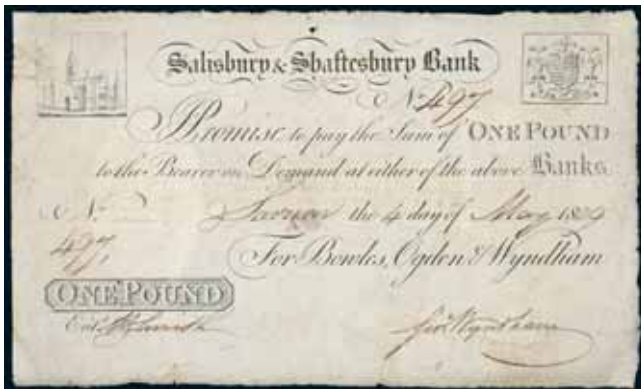 Salisbury & Shaftesbury Bank
No. 497
I Promise to pay the Sum of ONE POUND
to the Bearer on Demand at either of the above Banks
No. the 4 day of May
497
For Bowles, Ogden & Wyndham
ONE POUND
Geo. Wyndham